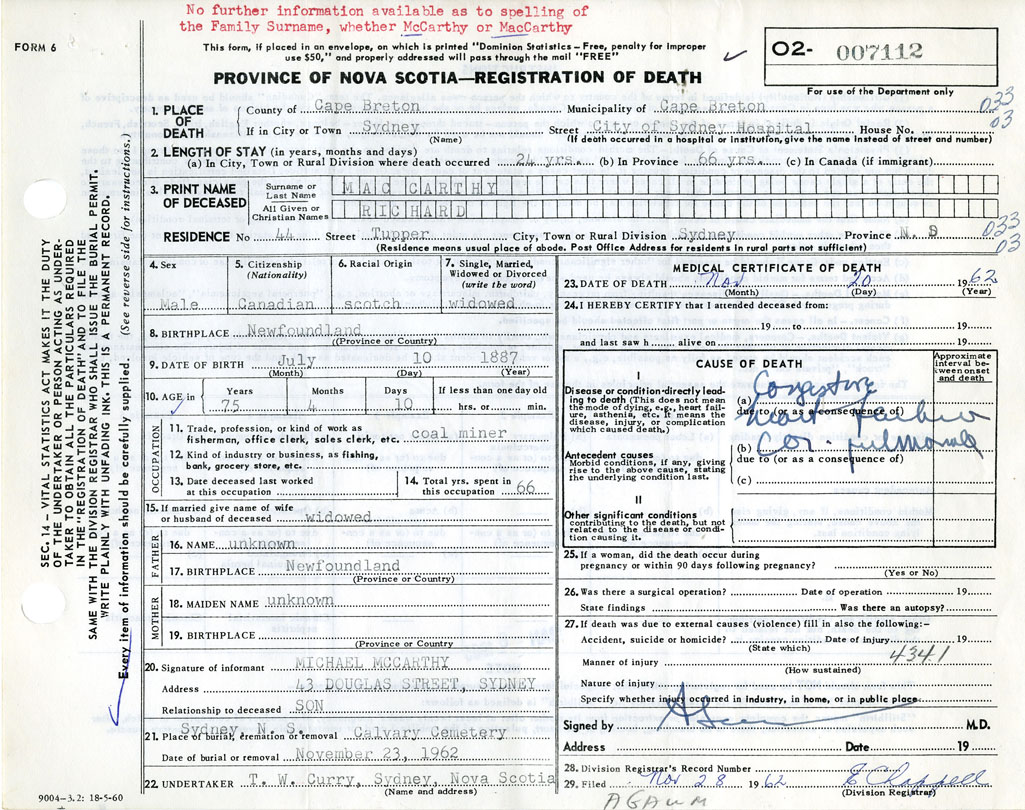 No further information available as to spelling of
the Family Surname, whether McCarthy or MacCarthy
FORM 6
This form, if placed in an envelope, on which is printed "Dominion Statistics—Free, penalty for improper
use $50," and properly addressed will pass through the mail "FREE"
O2- 007112
For use of the Department only
PROVINCE OF NOVA SCOTIA—REGISTRATION OF DEATH
1. PLACE OF DEATH
County of Cape Breton Municipality of Cape Breton 033
03
If in City or Town Sydney Street City of Sydney Hospital House No.
(Name) (If death occurred in a hospital or institution, give the name instead of street and number)
2. LENGTH OF STAY (in years, months and days)
(a) In City, Town or Rural Division where death occurred 24 yrs. (b) In Province 66 yrs. (c) In Canada (if immigrant)
3. PRINT NAME OF DECEASED
Surname or Last Name MAC CARTHY
All Given or Christian Names RICHARD
RESIDENCE No 44 Street Tupper City, Town or Rural Division Sydney Province N. S 033
03
(Residence means usual place of abode. Post Office Address for residents in rural parts not sufficient)
4. Sex
Male
5. Citizenship
(Nationality)
Canadian
6. Racial Origin
scotch
7. Single, Married,
Widowed or Divorced
(write the word)
widowed
8. BIRTHPLACE Newfoundland
(Province or Country)
9. DATE OF BIRTH July 10 1887
(Month) (Day) (Year)
10. AGE in
Years Months Days If less than one day old
75 4 10 hrs. or min.
OCCUPATION
11. Trade, profession, or kind of work as
fisherman, office clerk, sales clerk, etc. coal miner
12. Kind of industry or business, as fishing,
bank, grocery store, etc.
13. Date deceased last worked
at this occupation
14. Total yrs. spent in
this occupation 66
15. If married give name of wife
or husband of deceased widowed
FATHER
16. NAME unknown
17. BIRTHPLACE Newfoundland
(Province or Country)
MOTHER
18. MAIDEN NAME unknown
19. BIRTHPLACE
(Province or Country
20. Signature of informant MICHAEL MCCARTHY
Address 43 DOUGLAS STREET, SYDNEY
Relationship to deceased SON
Sydney, N. S.
21. Place of burial, cremation or removal Calvary Cemetery
Date of burial or removal November 23, 1962
22. UNDERTAKER T. W. Curry, Sydney, Nova Scotia
(Name and address)
9004—3.2: 18-5-60
MEDICAL CERTIFICATE OF DEATH
23. DATE OF DEATH Nov 20 1962
(Month) (Day) (Year)
24. I HEREBY CERTIFY that I attended deceased from:
19 to 19
and last saw h alive on 19
CAUSE OF DEATH
Approximate
interval be-
tween onset
and death
I
Disease or condition directly lead-
ing to death (This does not mean
the mode of dying, e.g., heart fail-
ure, asthenia, etc. It means the
disease, injury, or complication
which caused death.)
(a) Congestive
due to (or as a consequence of)
heart failure
Antecedent causes
Morbid conditions, if any, giving
rise to the above cause, stating
the underlying condition last.
(b) Cor pulmonale
due to (or as a consequence of)
(c)
II
Other significant conditions
contributing to the death, but not
related to the disease or condi-
tion causing it.
25. If a woman, did the death occur during
pregnancy or within 90 days following pregnancy?
(Yes or No)
26. Was there a surgical operation? Date of operation 19
State findings Was there an autopsy?
27. If death was due to external causes (violence) fill in also the following:-
Accident, suicide or homicide? Date of injury 19
(State which)
4341
Manner of injury
(How sustained)
Nature of injury
Specify whether injury occurred in industry, in home, or in public place
Signed by M.D.
Address Date 19
28. Division Registrar's Record Number
29. Filed Nov 28 1962 E Chappell
(Division Registrar)
AGAUM
SEC. 14 — VITAL STATISTICS ACT MAKES IT THE DUTY
OF THE UNDERTAKER OR PERSON ACTING AS UNDER-
TAKER TO OBTAIN ALL THE PARTICULARS REQUIRED
IN THE "REGISTRATION OF DEATH" AND TO FILE THE
SAME WITH THE DIVISION REGISTRAR WHO SHALL ISSUE THE BURIAL PERMIT.
WRITE PLAINLY WITH UNFADING INK. THIS IS A PERMANENT RECORD.
Every item of information should be carefully supplied. (See reverse side for instructions.)